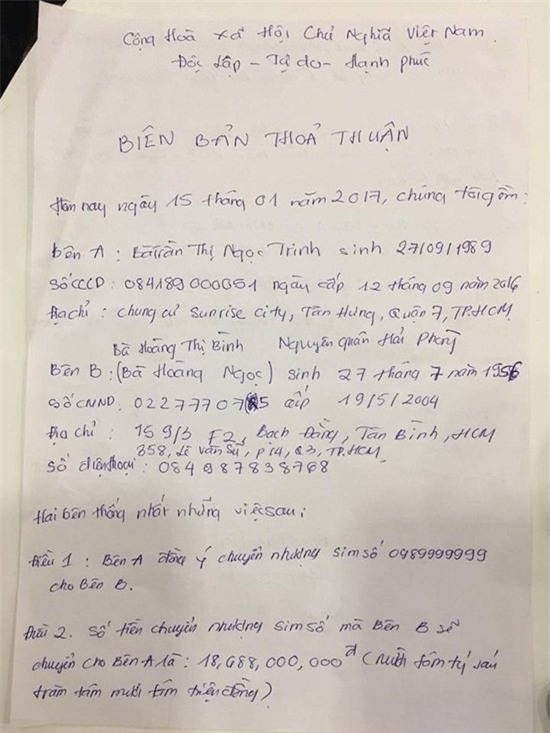 Cộng Hoà Xã Hội Chủ Nghĩa Việt Nam
Độc Lập - Tự do - Hạnh phúc
BIÊN BẢN THOẢ THUẬN
Hôm nay ngày 15 tháng 01 năm 2017, chúng tôi gồm:
Bên A : Bà Trần Thị Ngọc Trinh sinh 27/09/1989
Số CCCD: 084189000051 ngày cấp 12 tháng 09 năm 2016
Địa chỉ : chung cư Sunrise City, Tân Hưng, Quận 7, TP.HCM
Bà Hoàng Thị Bình Nguyên quán Hải Phòng
Bên B : (Bà Hoàng Ngọc) sinh 27 tháng 7 năm 1956
Số CMND: 0227770 5 cấp 19/5/2004
Địa chỉ : 159/3 F2, Bạch Đằng, Tân Bình, HCM
358, Lê Văn Sỹ, P14, Q3, TP.HCM
Số điện thoại : 084 987838768
Hai bên thống nhất những việc sau:
Điều 1 : Bên A đồng ý chuyển nhượng sim số 0989999999
cho Bên B.
Điều 2. Số tiền chuyển nhượng sim số mà Bên B sẽ
chuyển cho Bên A là : 18,688,000,000đ (mười tám tỷ sáu
trăm tám mươi tám triệu đồng)